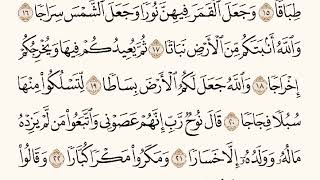 طِبَاقًا ۝١٥ وَجَعَلَ ٱلْقَمَرَ فِيهِنَّ نُورًا وَجَعَلَ ٱلشَّمْسَ سِرَاجًا ۝١٦
وَٱللَّهُ أَنۢبَتَكُم مِّنَ ٱلْأَرْضِ نَبَاتًا ۝١٧ ثُمَّ يُعِيدُكُمْ فِيهَا وَيُخْرِجُكُمْ
إِخْرَاجًا ۝١٨ وَٱللَّهُ جَعَلَ لَكُمُ ٱلْأَرْضَ بِسَاطًا ۝١٩ لِّتَسْلُكُوا۟ مِنْهَا
سُبُلًا فِجَاجًا ۝٢٠ قَالَ نُوحٌ رَّبِّ إِنَّهُمْ عَصَوْنِى وَٱتَّبَعُوا۟ مَن لَّمْ يَزِدْهُ
مَالُهُۥ وَوَلَدُهُۥٓ إِلَّا خَسَارًا ۝٢١ وَمَكَرُوا۟ مَكْرًا كُبَّارًا ۝٢٢ وَقَالُوا۟